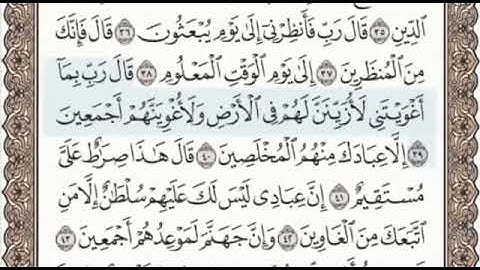 ٱلدِّينِ ٣٥ قَالَ رَبِّ فَأَنظِرْنِىٓ إِلَىٰ يَوْمِ يُبْعَثُونَ ٣٦ قَالَ فَإِنَّكَ
مِنَ ٱلْمُنظَرِينَ ٣٧ إِلَىٰ يَوْمِ ٱلْوَقْتِ ٱلْمَعْلُومِ ٣٨ قَالَ رَبِّ بِمَآ
أَغْوَيْتَنِى لَأُزَيِّنَنَّ لَهُمْ فِى ٱلْأَرْضِ وَلَأُغْوِيَنَّهُمْ أَجْمَعِينَ
٣٩ إِلَّا عِبَادَكَ مِنْهُمُ ٱلْمُخْلَصِينَ ٤٠ قَالَ هَٰذَا صِرَٰطٌ عَلَىَّ
مُسْتَقِيمٌ ٤١ إِنَّ عِبَادِى لَيْسَ لَكَ عَلَيْهِمْ سُلْطَٰنٌ إِلَّا مَنِ
ٱتَّبَعَكَ مِنَ ٱلْغَاوِينَ ٤٢ وَإِنَّ جَهَنَّمَ لَمَوْعِدُهُمْ أَجْمَعِينَ ٤٣